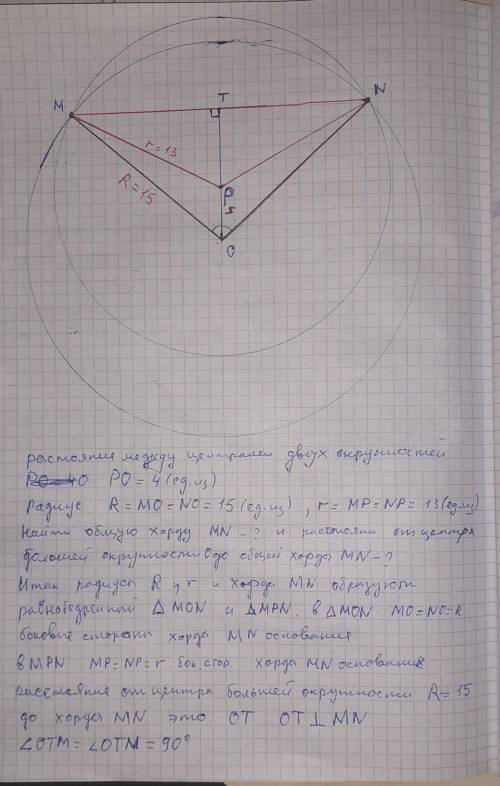 M
T
N
r=13
R=15
4
O
растояние между центрами двух окружностей
PO=4 (ед.из)
Радиус R=MO=NO=15 (ед.из), r=MP=NP=13 (ед.из)
Найти общую хорду MN-? и растояни от центра
большей окружности до общей хорды MN-?
Итак радиусы R и r и хорды MN образуют
равнобедренный △MON и △MPN. в △MON MO=NO=R
боковые стороны хорда MN основания
в MPN MP=NP=r бок.стор. хорда MN основания
расстояние от центра большей окружности R=15
до хорды MN это OT OT⊥MN
∠OTM=∠OTM=90°